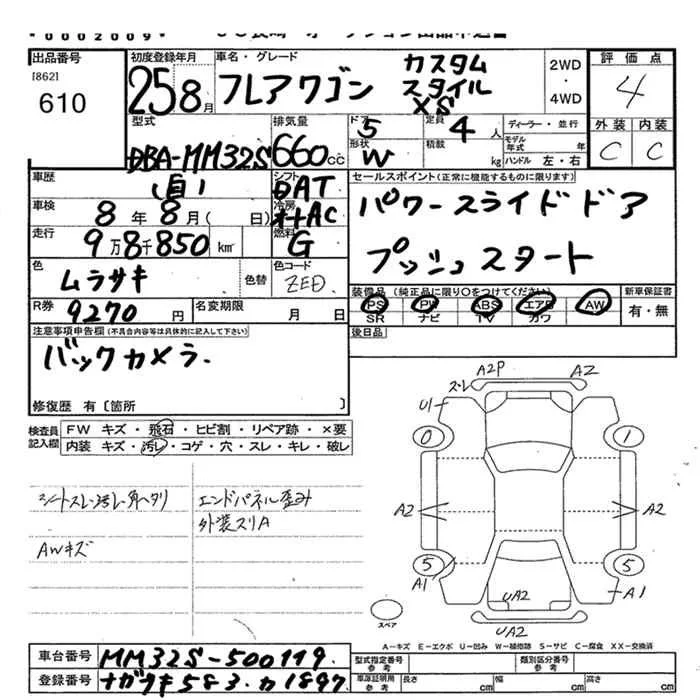 *0002009*
出品番号
[862]
610
初度登録年月
25 8月
車名・グレード
フレアワゴン カスタム
スタイル
XS
2WD
・
4WD
評価点
4
外装 内装
C C
型式
DBA-MM32S
排気量
660cc
ドア
5
形状
W
定員
4人
積載
kg
ディーラー・並行
モデル年式 年
ハンドル 左・右
車歴
(自)
シフト
DAT
車検
8年8月( 日)
冷房
オートAC
走行
9万8千850km
燃料
G
色
ムラサキ
色替
色コード
ZED
R券
9270円
名変期限
月 日
セールスポイント(正常に機能するものに限ります)
パワースライドドア
プッシュスタート
装備品(純正品に限り○をつけてください)
PS PW ABS エアB AW
SR ナビ TV カワ
新車保証書
有・無
後日品
注意事項申告欄(不具合内容等は具体的に記入して下さい)
バックカメラ.
修復歴 有〔箇所 〕
検査員
記入欄
FW キズ・飛石・ヒビ割・リペア跡・×要
内装 キズ・汚レ・コゲ・穴・スレ・キレ・破レ
シートスレ・汚レ・角ヘタリ
AWキズ
エンドパネル歪み
外装スリA
スレ A2P A2
U1
0 1
A2 A2
5 5
A1 A1
UA2
UA2
スペア
A-キズ E-エクボ U-凹み W-補修跡 S-サビ C-腐食 XX-交換済
車台番号 MM32S-500119
登録番号 ナガサキ583カ1897
型式指定番号
参考
類別区分番号
参考
車庫証明用
参考
長さ cm
幅 cm
高さ cm